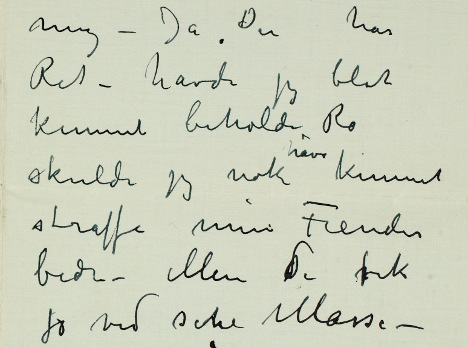 mig – Ja, Du har
Ret – havde jeg blot
kunnet beholde Ro
skulde jeg nok have kunnet
straffe mine Fiender
bedre – Men De fik
jo ved selve Masse –